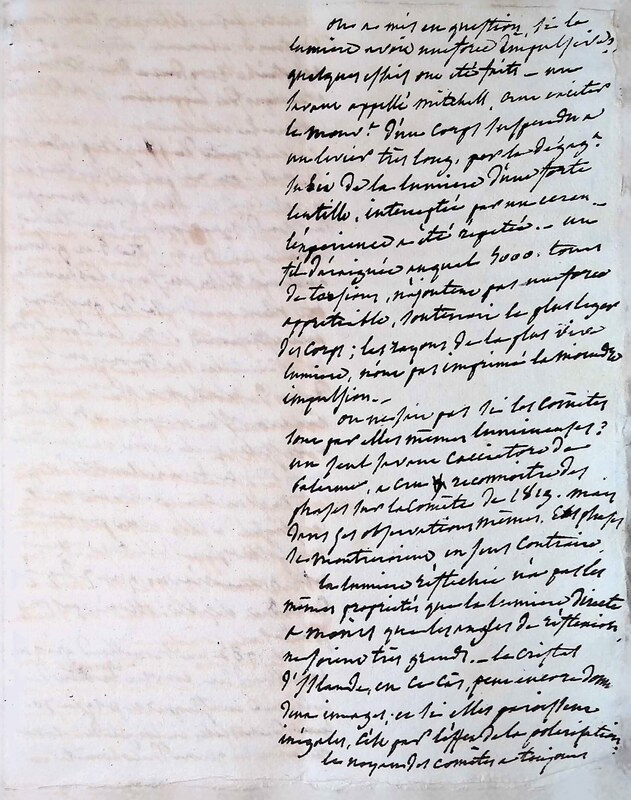 on a mis en question, si la
lumiere avoit une force d'impulsion.
quelques essais ont été faits – un
savant appellé mitchell, crut exciter
le mouvt d'un corps suspendu a
un levier très long, par le dégagt
subit de la lumiere d'une forte
lentille, interceptée par un ecran –
l'expérience a été répetée. – un
fil d'araignée auquel 5000. tours
de torsion, n'ajoutent pas une force
appretiable, soutenait le plus leger
des corps; les rayons de la plus vive
lumiere, n'ont pas imprimé la moindre
impulsion. –
on ne sait pas si les Comètes
sont par elles mêmes lumineuses?
un seul savant Cacciatore de
Palerme, a cru reconnoitre des
phases sur la comète de 1819. mais
dans ses observations mêmes, Ces phases
se montreroient en sens Contraire.
la lumiere réfléchie n'a pas les
mêmes propriétés que la lumiere directe
a moins que les angles de réflexion
ne soient très grands. – le Cristal
d'Islande, en ce cas, peut encore donner
deux images; et si elles paroissent
inégales, C'est par l'effet de la polarisation.
les noyau des comètes a toujours